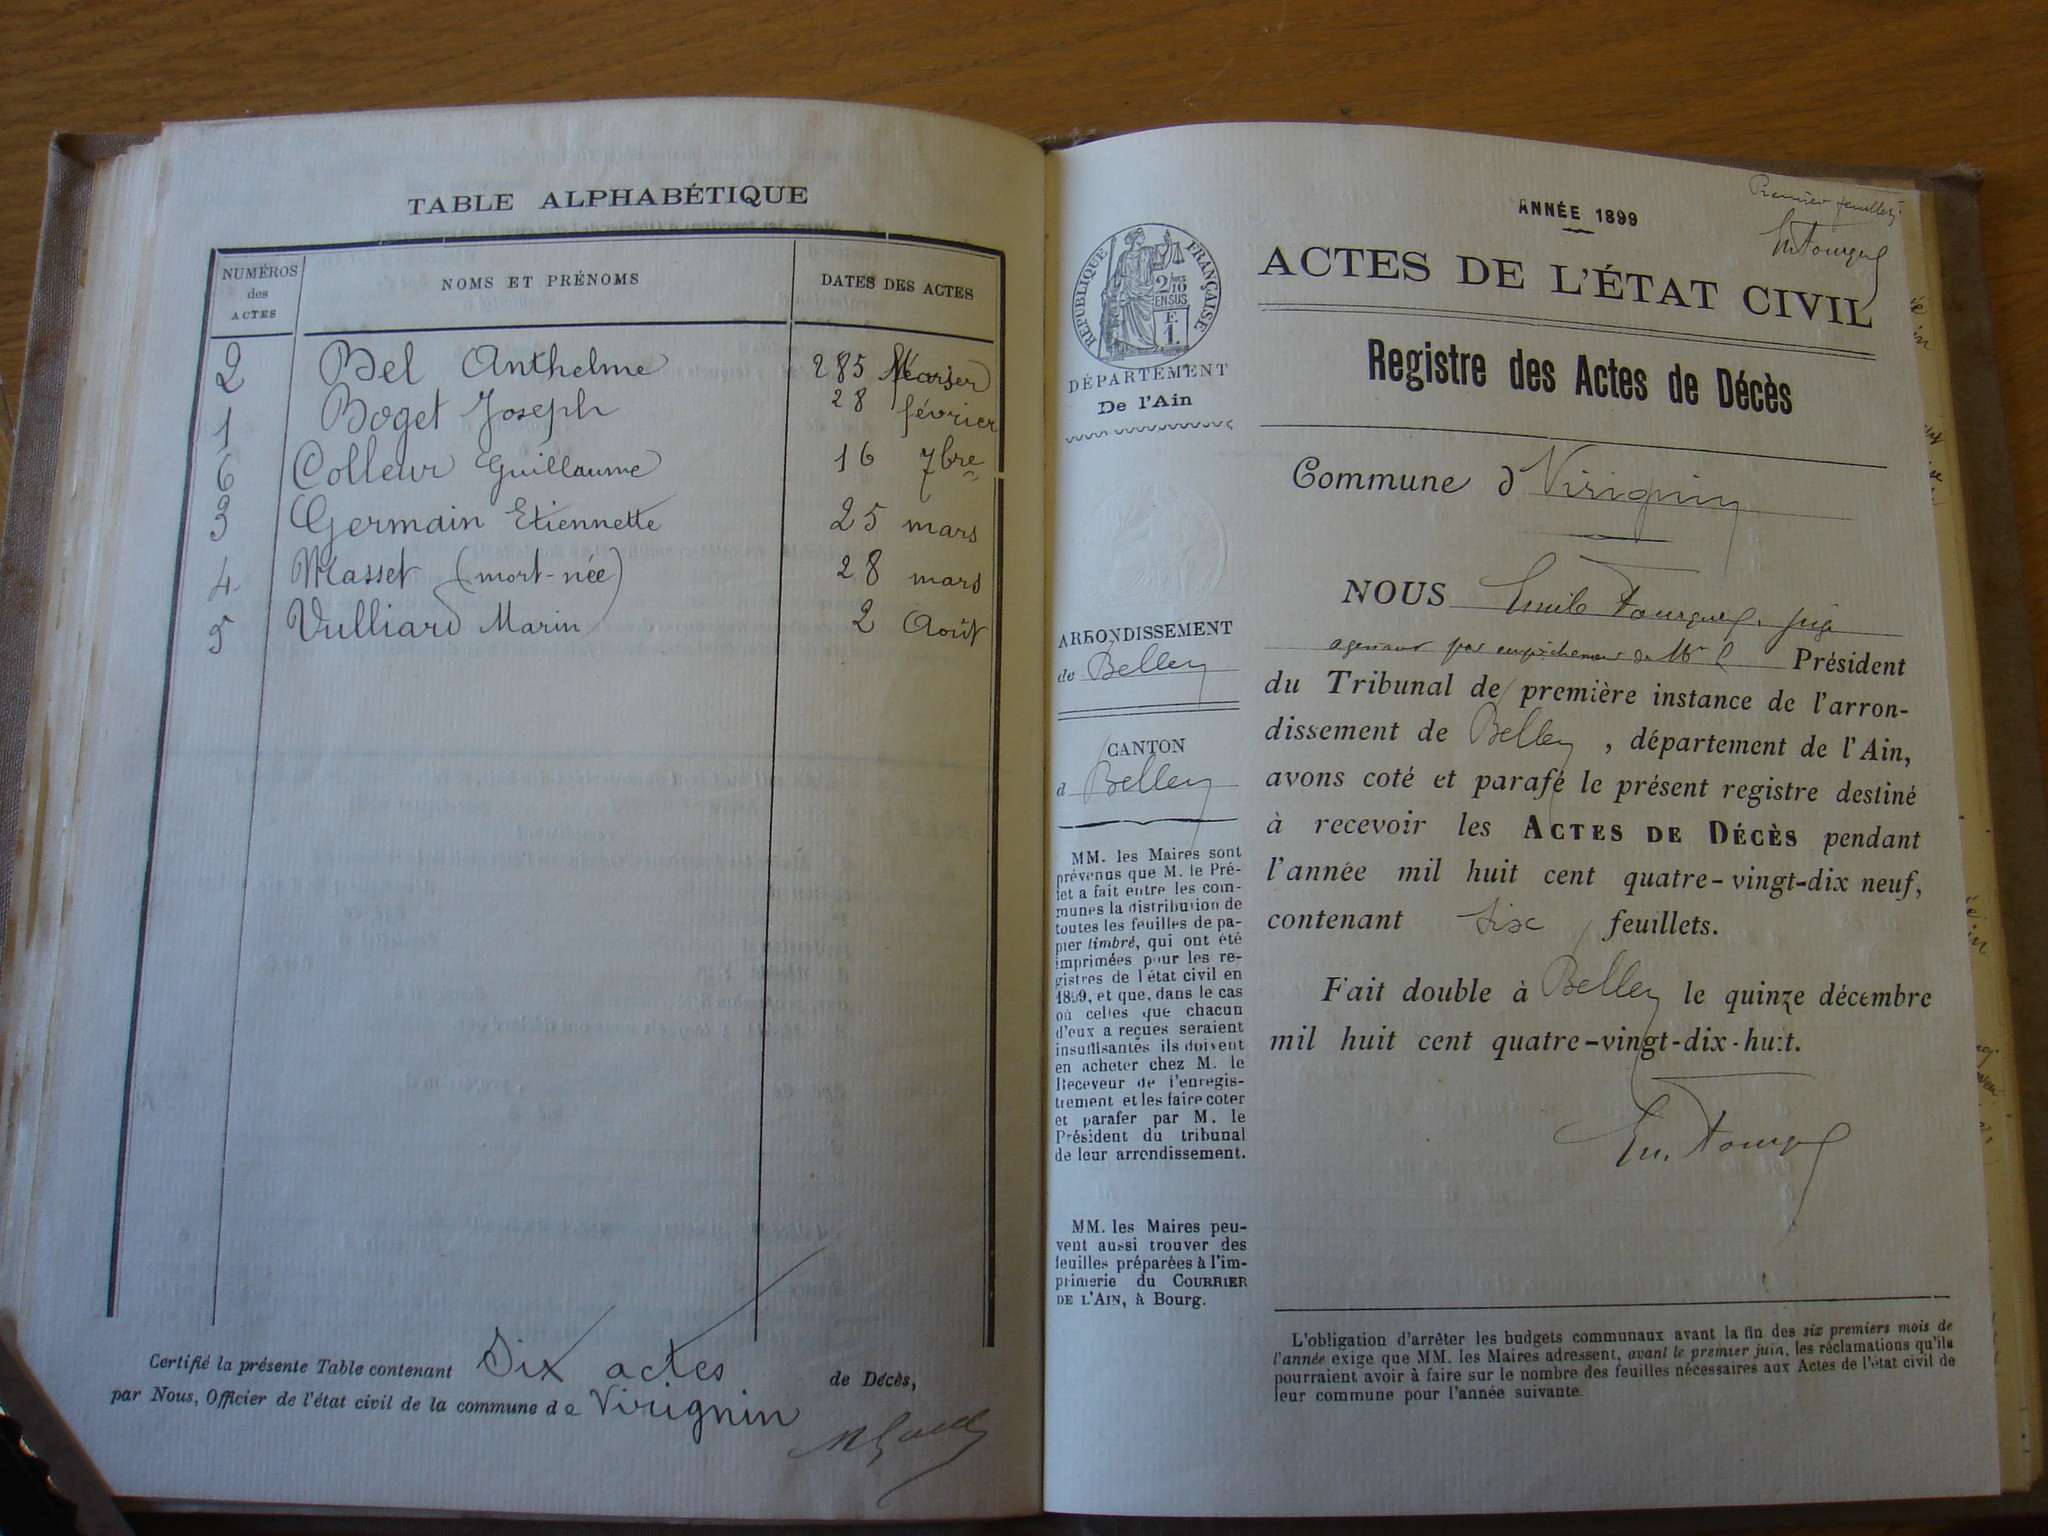 TABLE ALPHABÉTIQUE
NUMÉROS des ACTES
NOMS ET PRÉNOMS
DATES DES ACTES
2 Bel Anthelme
1 Boget Joseph 28 février
6 Colleur Guillaume 16 7bre
3 Germain Etiennette 25 mars
4 Masset (mort-née) 28 mars
5 Vulliard Marin 2 Août
Certifié la présente Table contenant Six actes de Décès,
par Nous, Officier de l'état civil de la commune de Virignin
Premier feuillet
ANNÉE 1899
ACTES DE L'ÉTAT CIVIL
Registre des Actes de Décès
RÉPUBLIQUE FRANÇAISE
2/10
EN SUS
F.
1.
DÉPARTEMENT
De l'Ain
Commune d Virignin
ARRONDISSEMENT
de Belley
CANTON
d Belley
MM. les Maires sont
prévenus que M. le Pré-
fet a fait entre les com-
munes la distribution de
toutes les feuilles de pa-
pier timbré, qui ont été
imprimées pour les re-
gistres de l'état civil en
1899, et que, dans le cas
où celles que chacun
d'eux a reçues seraient
insuffisantes ils doivent
en acheter chez M. le
Receveur de l'enregis-
trement et les faire coter
et parafer par M. le
Président du tribunal
de leur arrondissement.
MM. les Maires peu-
vent aussi trouver des
feuilles préparées à l'im-
primerie du COURRIER
DE L'AIN, à Bourg.
NOUS Emile
par empêchement de Mr Président
du Tribunal de première instance de l'arron-
dissement de Belley, département de l'Ain,
avons coté et parafé le présent registre destiné
à recevoir les ACTES DE DÉCÈS pendant
l'année mil huit cent quatre-vingt-dix neuf,
contenant six feuillets.
Fait double à Belley le quinze décembre
mil huit cent quatre-vingt-dix-huit.
L'obligation d'arrêter les budgets communaux avant la fin des six premiers mois de
l'année exige que MM. les Maires adressent, avant le premier juin, les réclamations qu'ils
pourraient avoir à faire sur le nombre des feuilles nécessaires aux Actes de l'état civil de
leur commune pour l'année suivante.